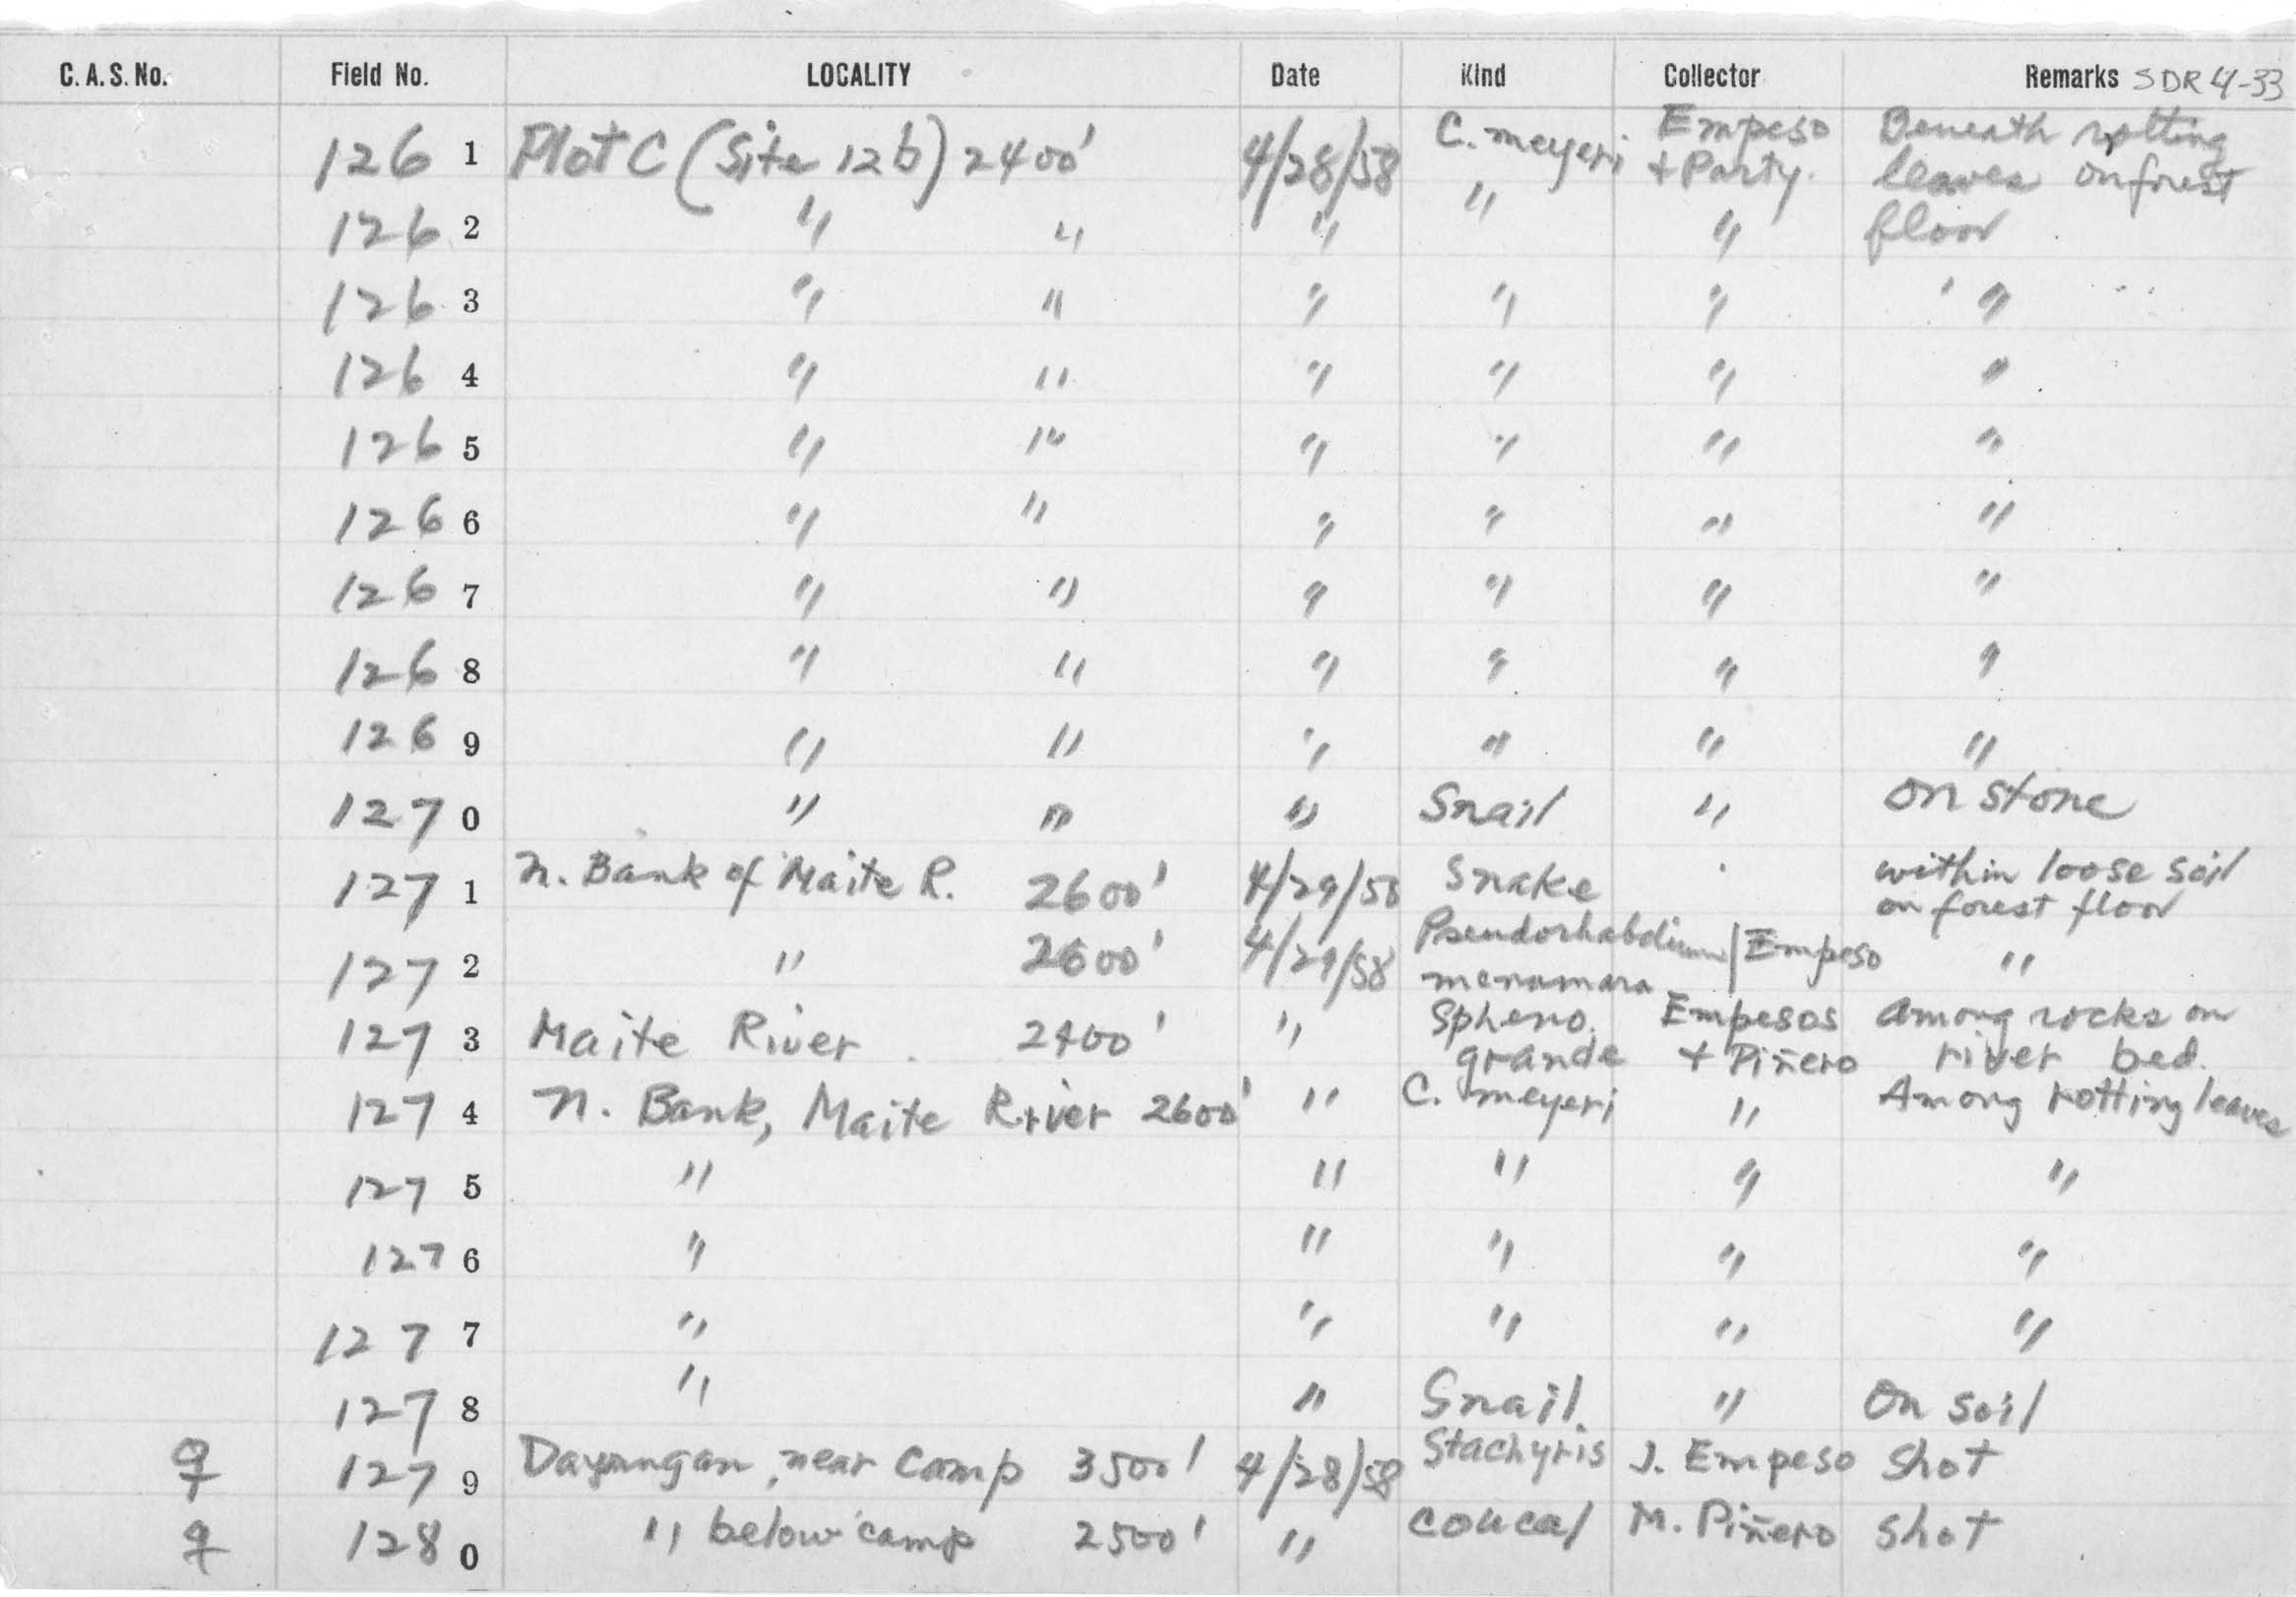 C. A. S. No. Field No. LOCALITY Date Kind Collector Remarks SDR 4-33
1261 Plot C (Site 12b) 2400' 4/28/58 C. meyeri Empeso + Party. Beneath rotting leaves on forest floor
1262 " " " " "
1263 " " " " " "
1264 " " " " " "
1265 " " " " " "
1266 " " " " " "
1267 " " " " " "
1268 " " " " " "
1269 " " " " " "
1270 " " " Snail " on stone
1271 N. Bank of Maite R. 2600' 4/29/58 Snake within loose soil on forest floor
1272 " 2600' 4/29/58 Pseudorhabdium mcnamara | Empeso "
1273 Maite River 2400' " Spheno. grande Empesos + Piñero Among rocks on river bed.
1274 N. Bank, Maite River 2600' " C. meyeri " Among rotting leaves
1275 " " " " "
1276 " " " " "
1277 " " " " "
1278 " " Snail. " On soil
♀ 1279 Dayongan, near Camp 3500' 4/28/58 Stachyris J. Empeso Shot
♀ 1280 " below camp 2500' " coucal M. Piñero shot